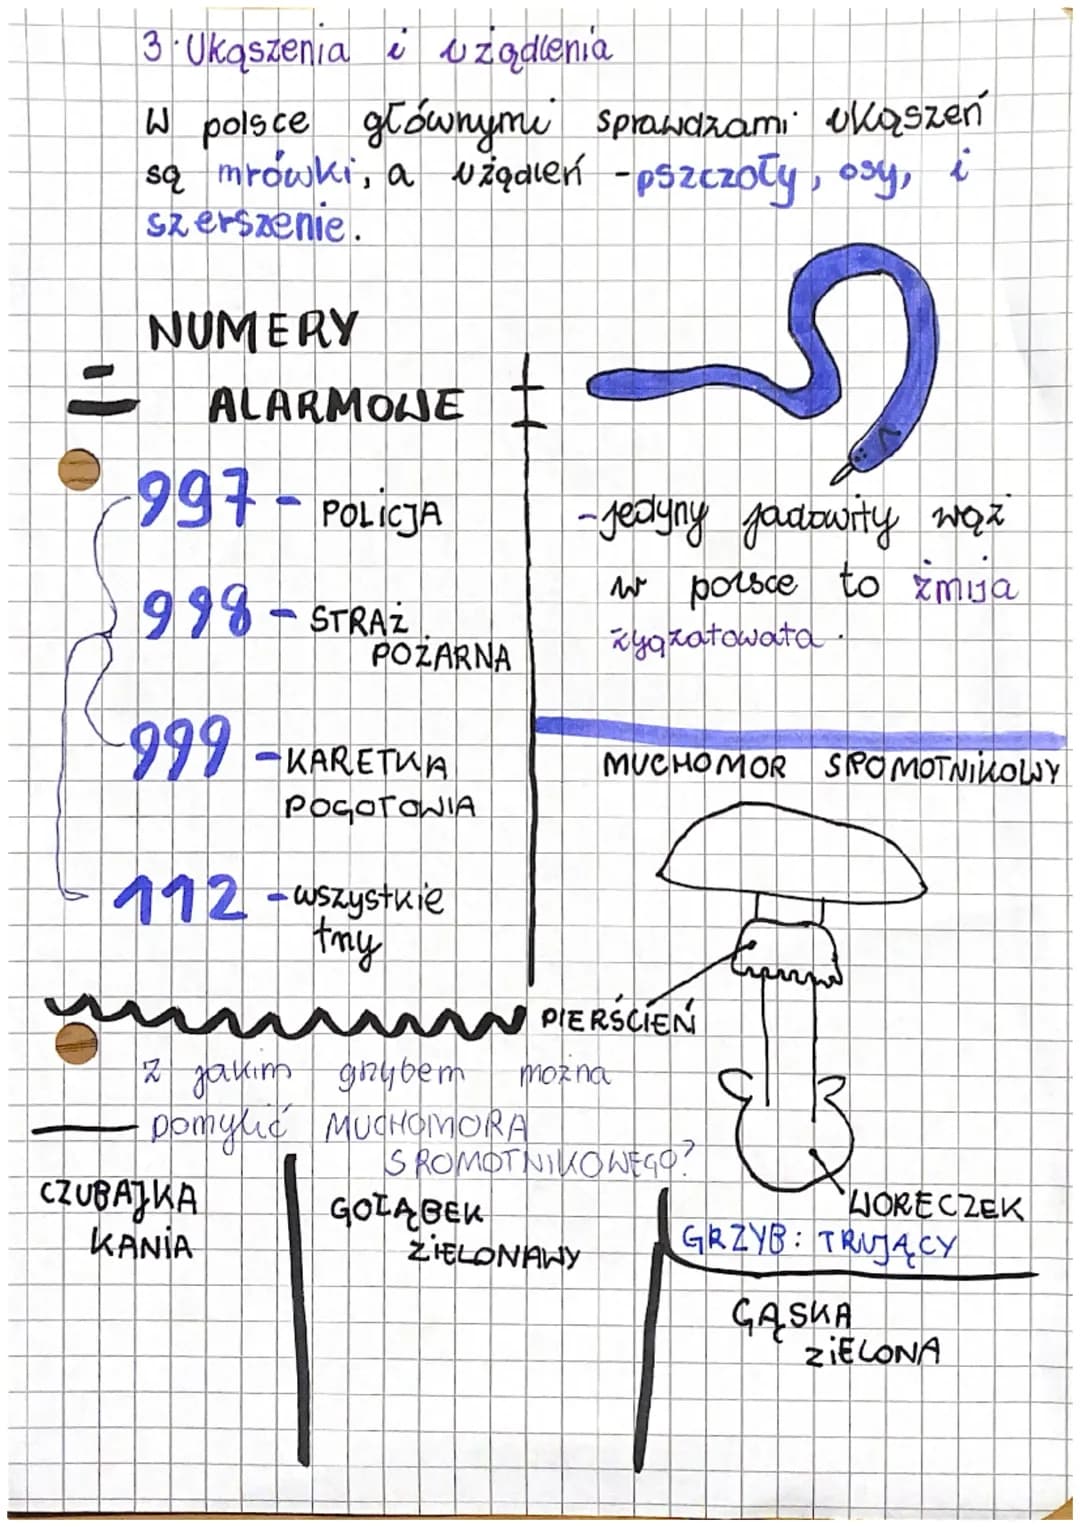 3. Ukąszenia i użądlenia
W polsce głównymi sprawdzami ukąszeń
są mrówki, a użądleń - pszczoły, osy, i
szerszenie.
NUMERY
ALARMOWE
997 - POLICJA
998 - STRAŻ
POŻARNA
999 - KARETKA
POGOTOWIA
112 - wszystkie
try
- jedyny jadowity wąż
w polsce to żmija
zygzatowata.
MUCHOMOR SROMOTNIKOWY
PIERŚCIEŃ
WORECZEK
GRZYB: TRUJĄCY
z jakim grzybem można
pomylić MUCHOMORA
SROMOTNIKOWEGO?
CZUBAJKA
KANIA
GOŁĄBEK
ZIELONAWY
GĄSKA
ZIELONA